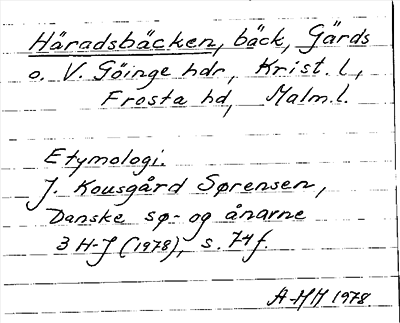 Häradsbäcken, bäck, Gärds
o. V. Göinge hdr, Krist. l,
Frosta hd, Malm. l.
Etymologi.
J. Kousgård Sørensen,
Danske sø- og ånavne
3 H-J (1978), s. 74f.
A-HH 1978.